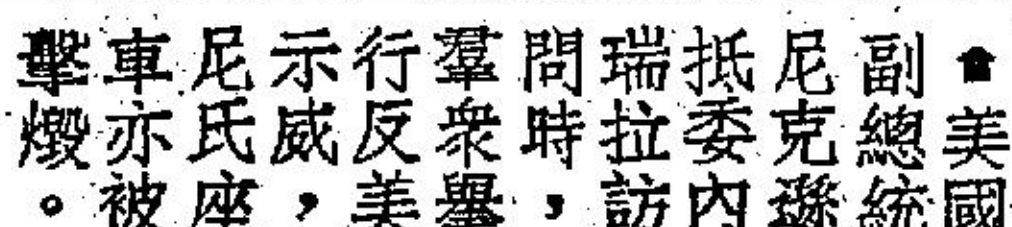 ⬆美國
副總統
尼克遜
抵委內
瑞拉訪
問時，
羣衆舉
行反美
示威，
尼氏座
車亦被
擊燬。